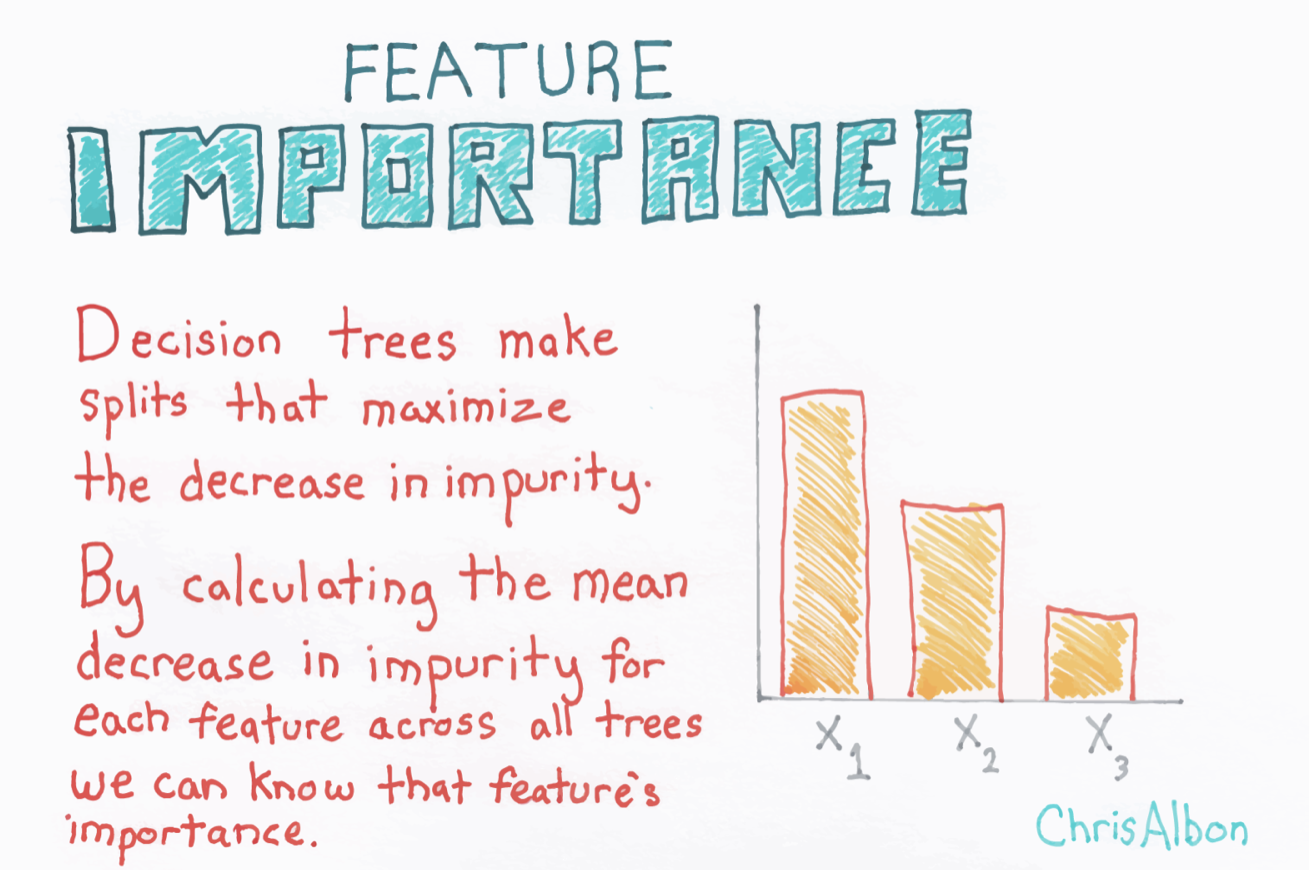 FEATURE
IMPORTANCE
Decision trees make
splits that maximize
the decrease in impurity.
By calculating the mean
decrease in impurity for
each feature across all trees
we can know that feature's
importance.
X1 X2 X3
ChrisAlbon